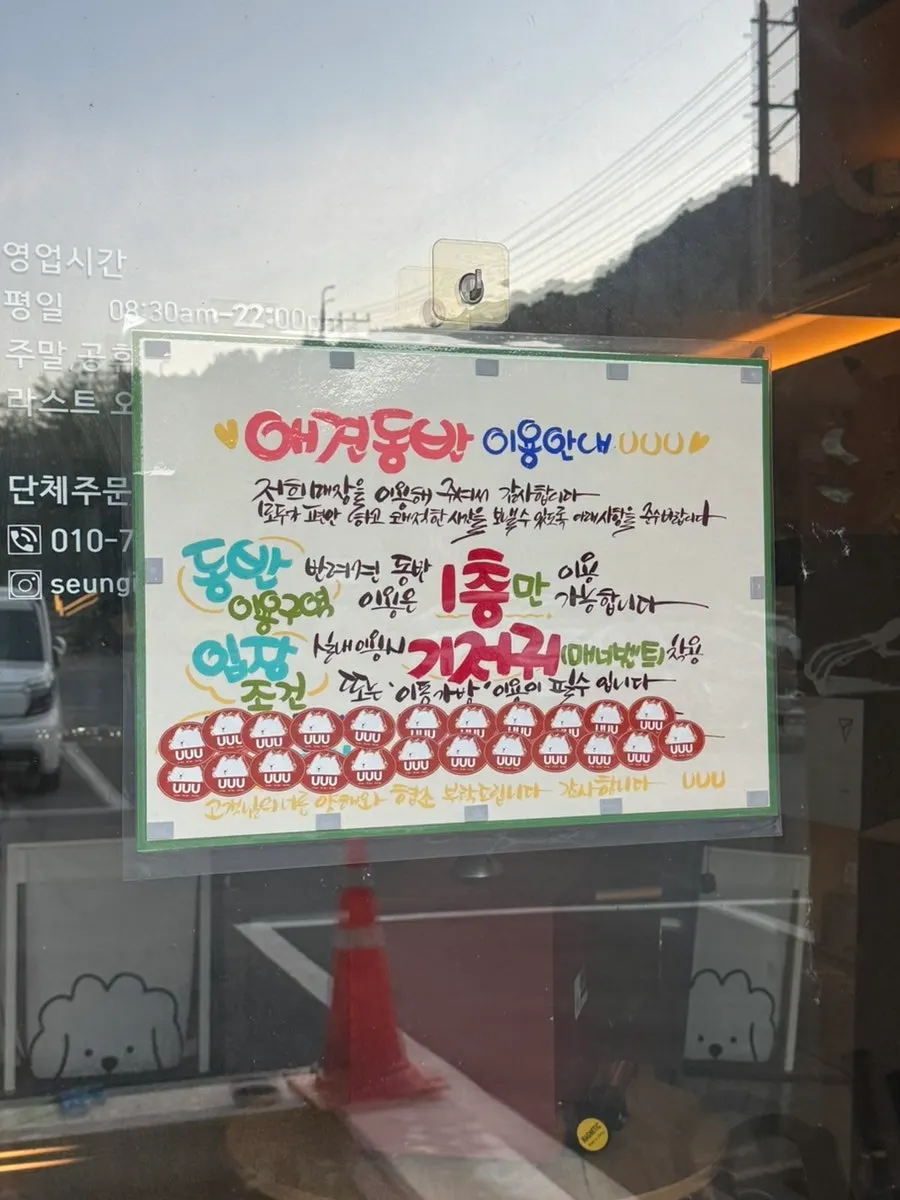 영업시간
평일 08:30am-22:00pm
주말 공휴
라스트 오
단체주문
010-7
seungi
애견동반 이용안내 UUU
저희 매장을 이용해 주셔서 감사합니다
모두가 편안하고 쾌적한 시간을 보낼수 있도록 아래사항을 준수바랍니다
동반 이용구역
반려견 동반 이용은 1층만 이용 가능합니다
입장 조건
실내 이용시 기저귀(매너밴드) 착용
또는 '이동가방' 이용이 필수 입니다
UUU UUU UUU UUU UUU UUU UUU UUU UUU UUU UUU
UUU UUU UUU UUU UUU UUU UUU UUU UUU UUU UUU UUU
고객님의 너른 양해와 협조 부탁드립니다 감사합니다 UUU
MAGNETIC